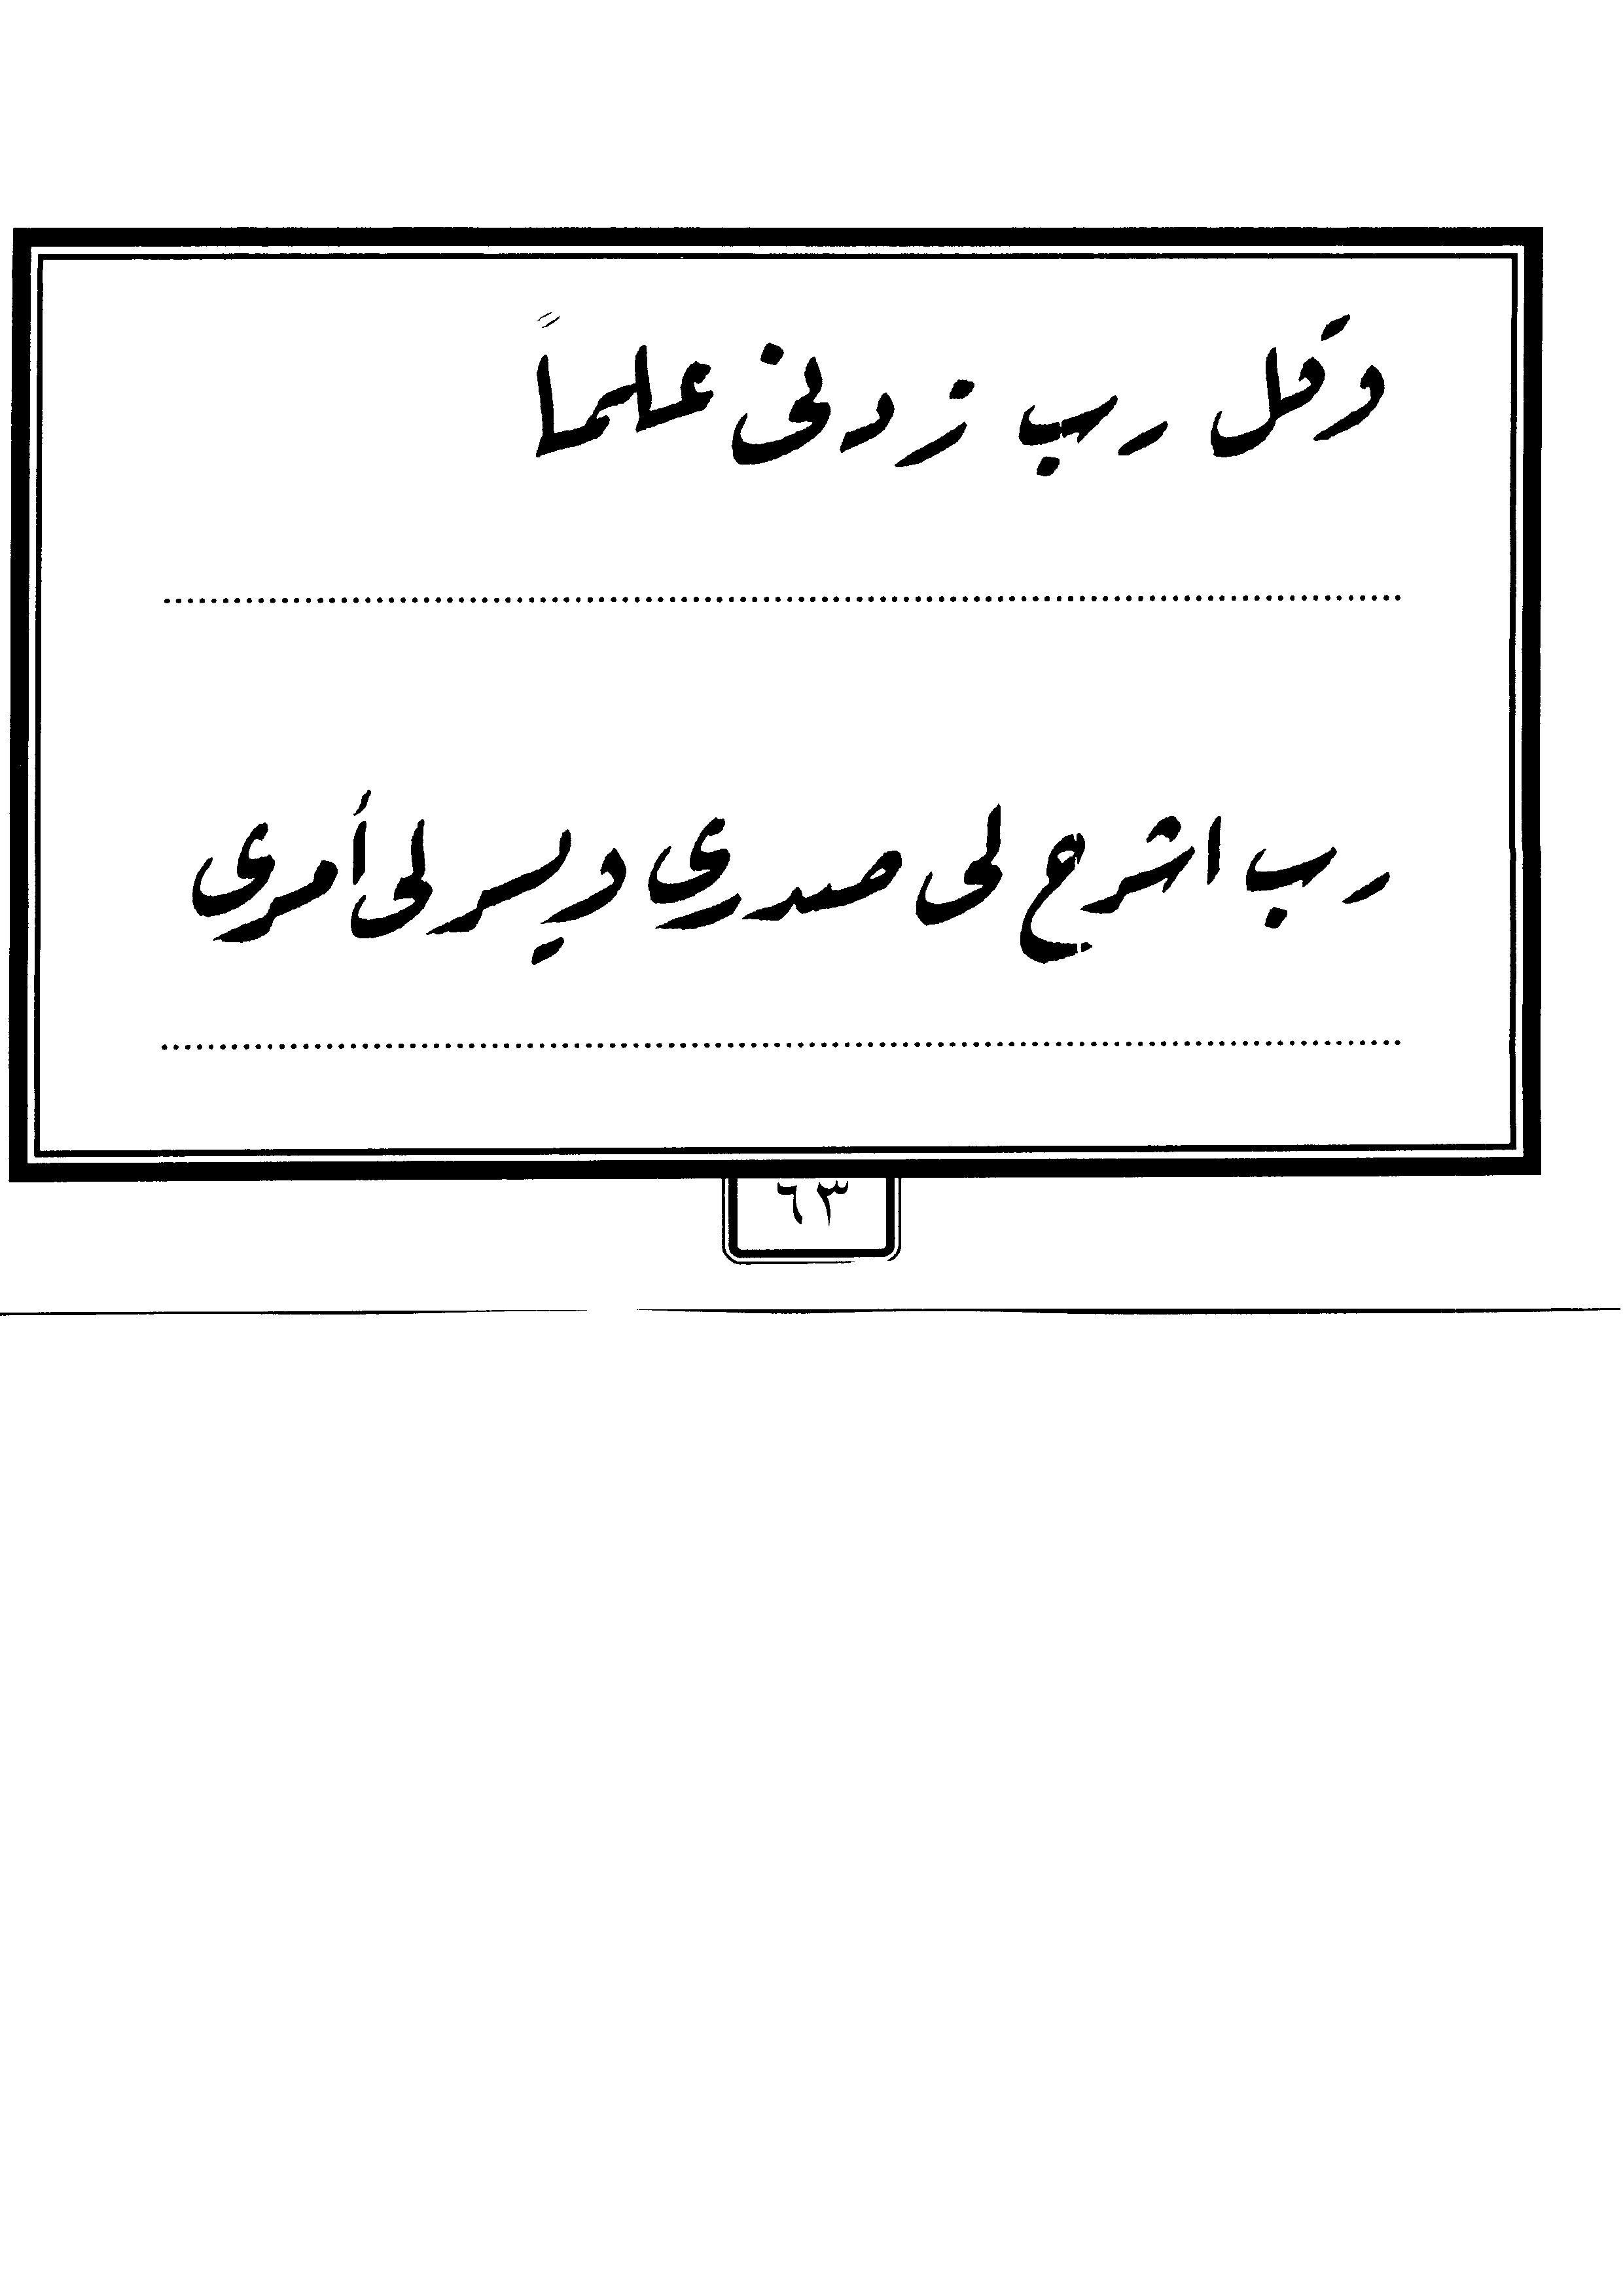 وقل رب زدنى علماً
رب اشرح لى صدري ويسر لى أمري
٦٣